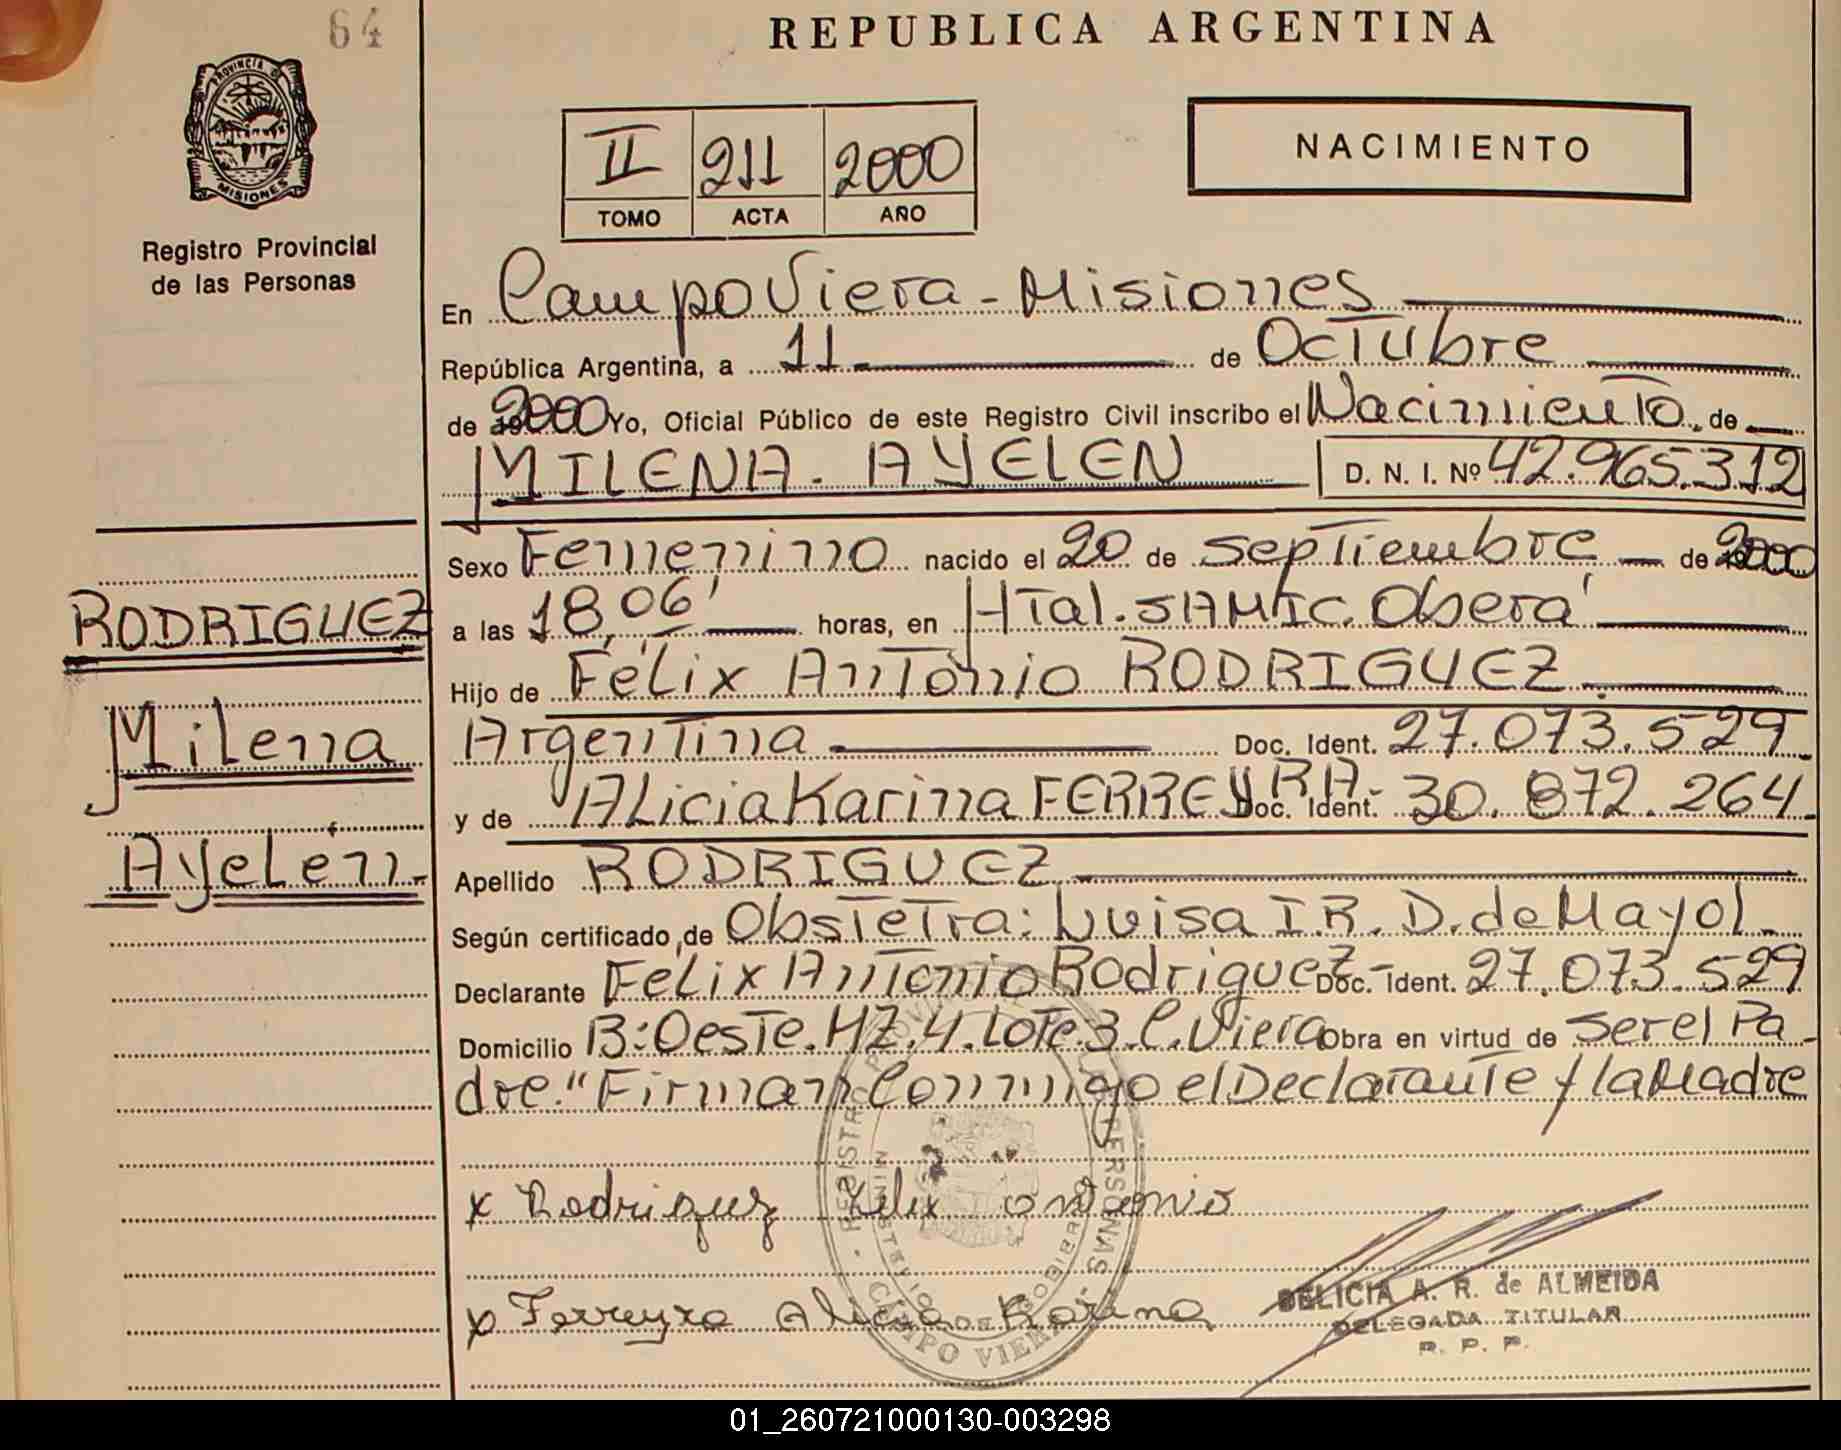 64
REPUBLICA ARGENTINA
PROVINCIA DE
MISIONES
Registro Provincial
de las Personas
II 211 2000
TOMO ACTA AÑO
NACIMIENTO
En Campo Viera - Misiones
República Argentina, a 11 de Octubre
de 2000 Yo, Oficial Público de este Registro Civil inscribo el Nacimiento de
MILENA - AYELEN D. N. I. Nº 42.965.312
Sexo Femenino nacido el 20 de septiembre de 2000
a las 18,06' horas, en Htal. SAMIC. Oberá
Hijo de Félix Antonio RODRIGUEZ
Argentina Doc. Ident. 27.073.529
y de Alicia Karina FERREYRA - Doc. Ident. 30.872.264
Apellido RODRIGUEZ
Según certificado de Obstetra: Luisa I.R. D. de Mayol -
Declarante Félix Antonio Rodriguez - Doc. Ident. 27.073.529
Domicilio B: Oeste. MZ. 4. Lote. 3. C. Viera Obra en virtud de ser el Pa-
dre." Firman Conmigo el Declarante y la Madre
RODRIGUEZ
Milena
Ayelén -
x Rodriguez Felix antonio
x Ferreyra Alicia Karina
REGISTRO PROVINCIAL DE LAS PERSONAS
MINISTERIO DE GOBIERNO
CAMPO VIERA
DELICIA A. R. de ALMEIDA
DELEGADA TITULAR
R. P. P.
01_260721000130-003298